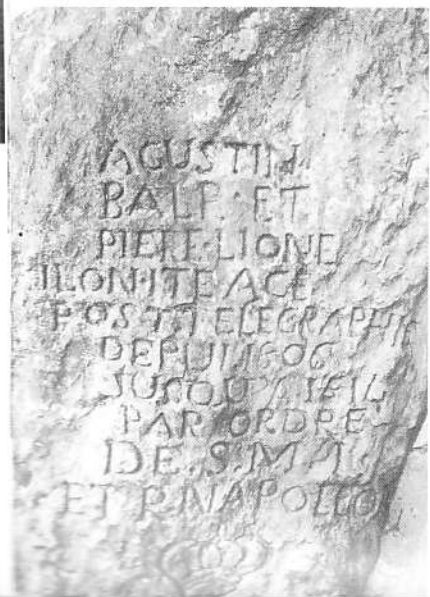 AGUSTIN
BALP · ET
PIERE · LIONE
IL ON · ITE A CE
POST · TELEGRAPHE
DEPUI 1806
JUSQU'A
PAR ORDRE
DE · S · M · I ·
ET R NAPOLEO